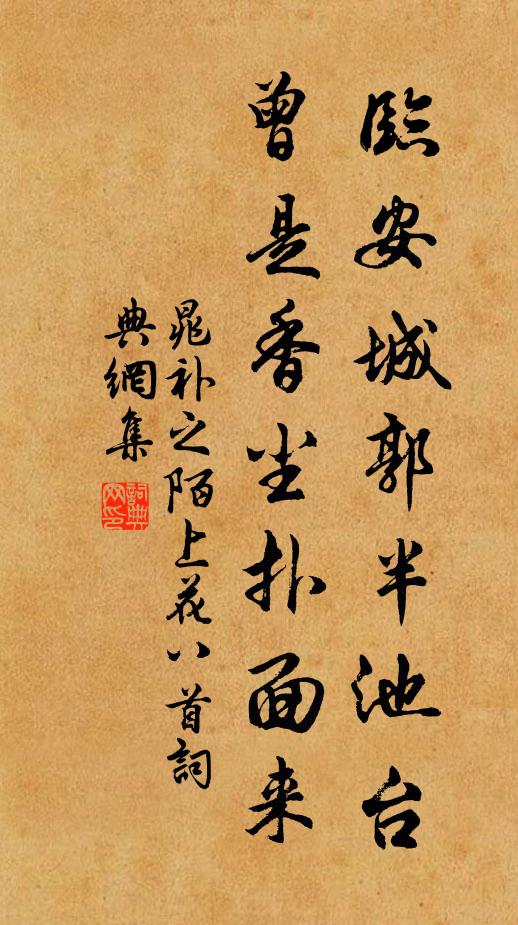 臨安城郭半池台
曾是香尘扑面来
晁补之陌上花八首詞
典網集
詞典
网印